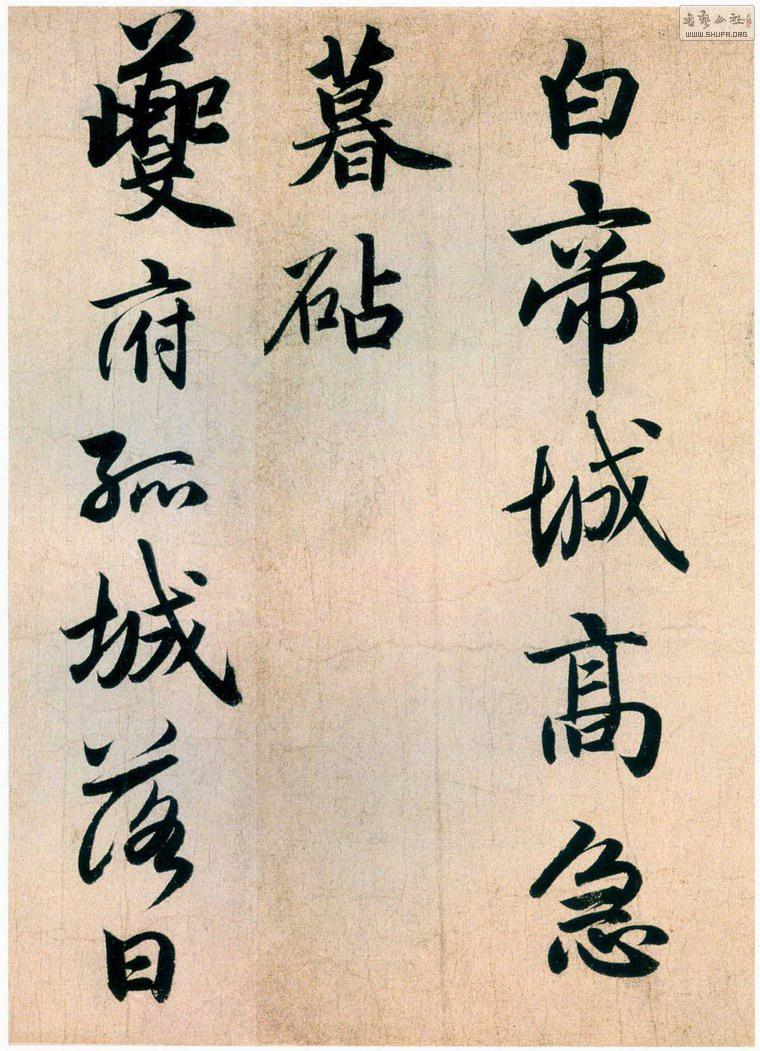 白帝城高急
暮砧
夔府孤城落日
書藝公社
WWW.SHUFA.ORG